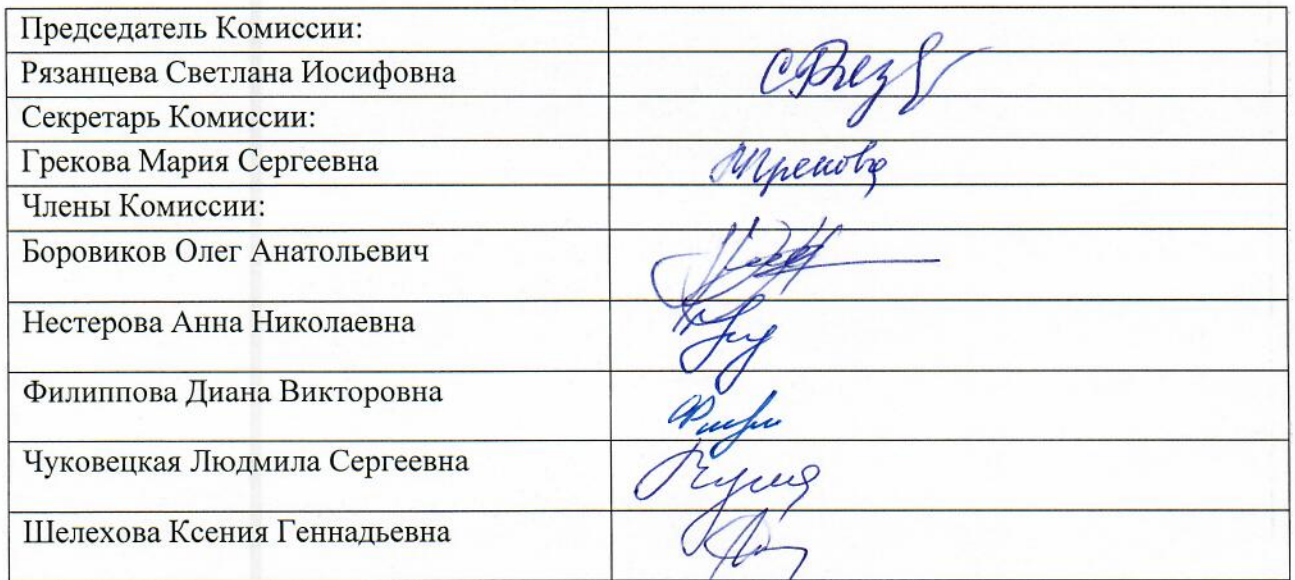 Председатель Комиссии:
Рязанцева Светлана Иосифовна
Секретарь Комиссии:
Грекова Мария Сергеевна
Члены Комиссии:
Боровиков Олег Анатольевич
Нестерова Анна Николаевна
Филиппова Диана Викторовна
Чуковецкая Людмила Сергеевна
Шелехова Ксения Геннадьевна